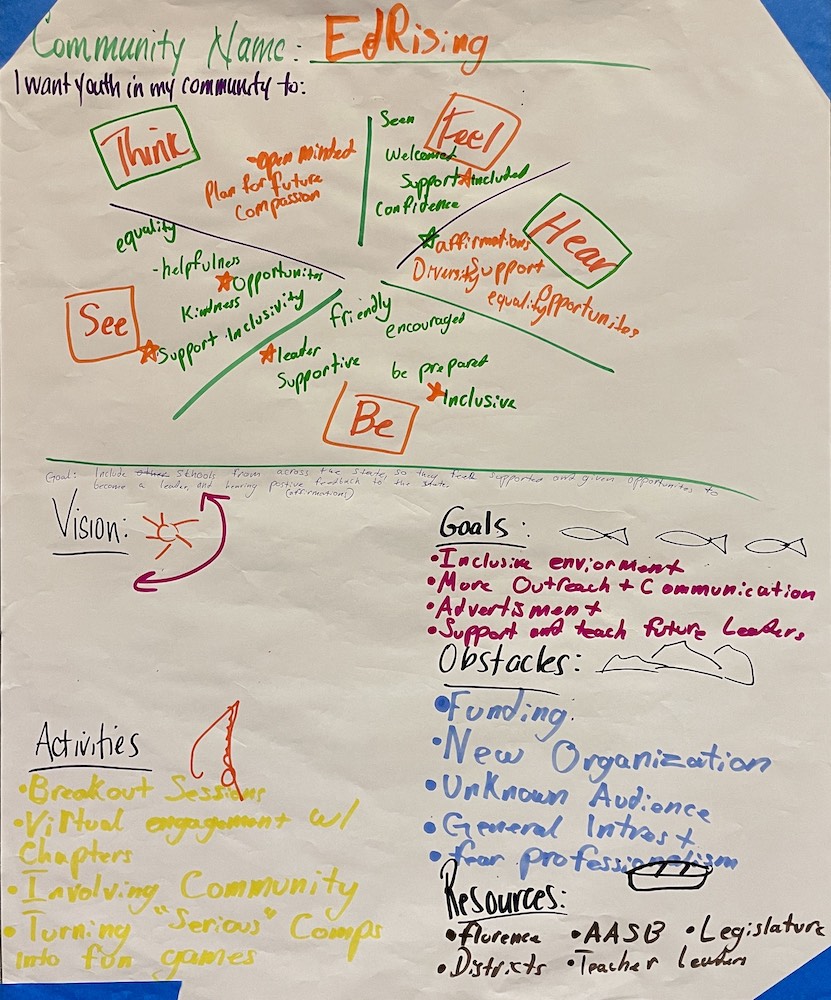 Community Name: EdRising
I want youth in my community to:
Think
-open minded
Plan for future
Compassion
Feel
Seen
Welcomed
Support Included
Confidence
Hear
affirmations
Diversity Support
equality Opportunites
See
equality
-helpfulness
Opportunites
Kindness
Support Inclusivity
Be
friendly
encouraged
leader
Supportive
be prepared
Inclusive
Goal: Include schools from across the state, so they feel supported and given opportunites to
become a leader, and hearing postive feedback to the state.
(affirmations)
Vision:
Goals:
•Inclusive enviorment
•More Outreach + Communication
•Advertisment
•Support and teach future Leaders
Obstacles:
•Funding
•New Organization
•Unknown Audience
•General Intrest
•fear professionalism
Activities
•Breakout Sessions
•Virtual engagement w/
Chapters
•Involving Community
•Turning "Serious" Comps
into fun games
Resources:
•florence •AASB •Legislature
•Districts •Teacher leaders